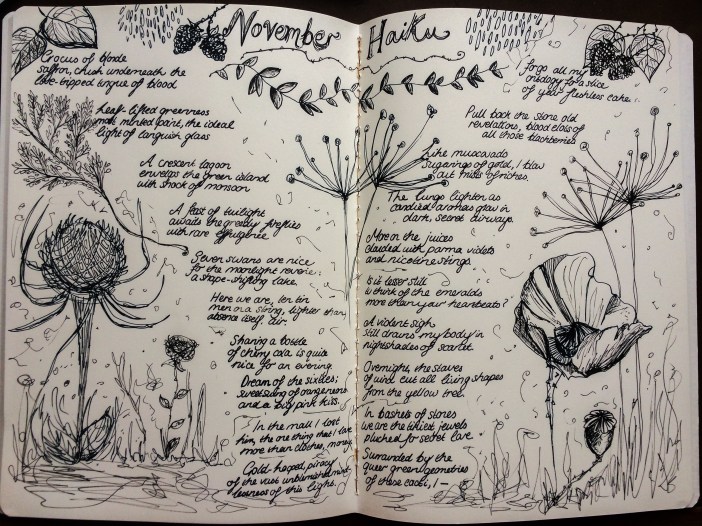 November Haiku
Crocus of blonde
saffron, crush underneath the
love-tipped tongue of blood
Leaf-lifted greenness
minted paint, the ideal
light of languish glass
A crescent lagoon
envelops the green island
with shock of monsoon
A feast of twilight
awaits the greedy fireflies
with rare effulgence.
Seven swans are nice
for the moonlight reverie:
a shape-shifting lake.
Here we are, ten tin
men on a string, lighter than
absence itself: air
Sharing a bottle
of cherry cola is quite
nice for an evening.
Dream of the sixties:
sweet swing of tangerine
and a big pink kiss.
In the mall I lost
him, the one thing that I love
more than clothes, money.
Gold-heaped, piracy
of the vast
of this light.
I forgo all my
for a slice
of your fleshless cake.
Pull back the stone old
revelations, blood clots of
all those blackberries
Like muscovado
sugarings of gold, I claw
out mills of riches.
The lungs lighten as
candied aromas draw in
dark, secret airways.
More on the juices
clouded with parma violets
and nicotine stings.
Is it lesser still
to think of the emeralds
more than your heartbeats?
A violent sigh
still drains my body in
nightshades of scarlet.
Overnight, the slaves
of wind cut all living shapes
from the yellow tree.
In baskets of stones
we are the littlest jewels
plucked for secret love.
Surrounded by the
queer green geometries
of these cacti, I —